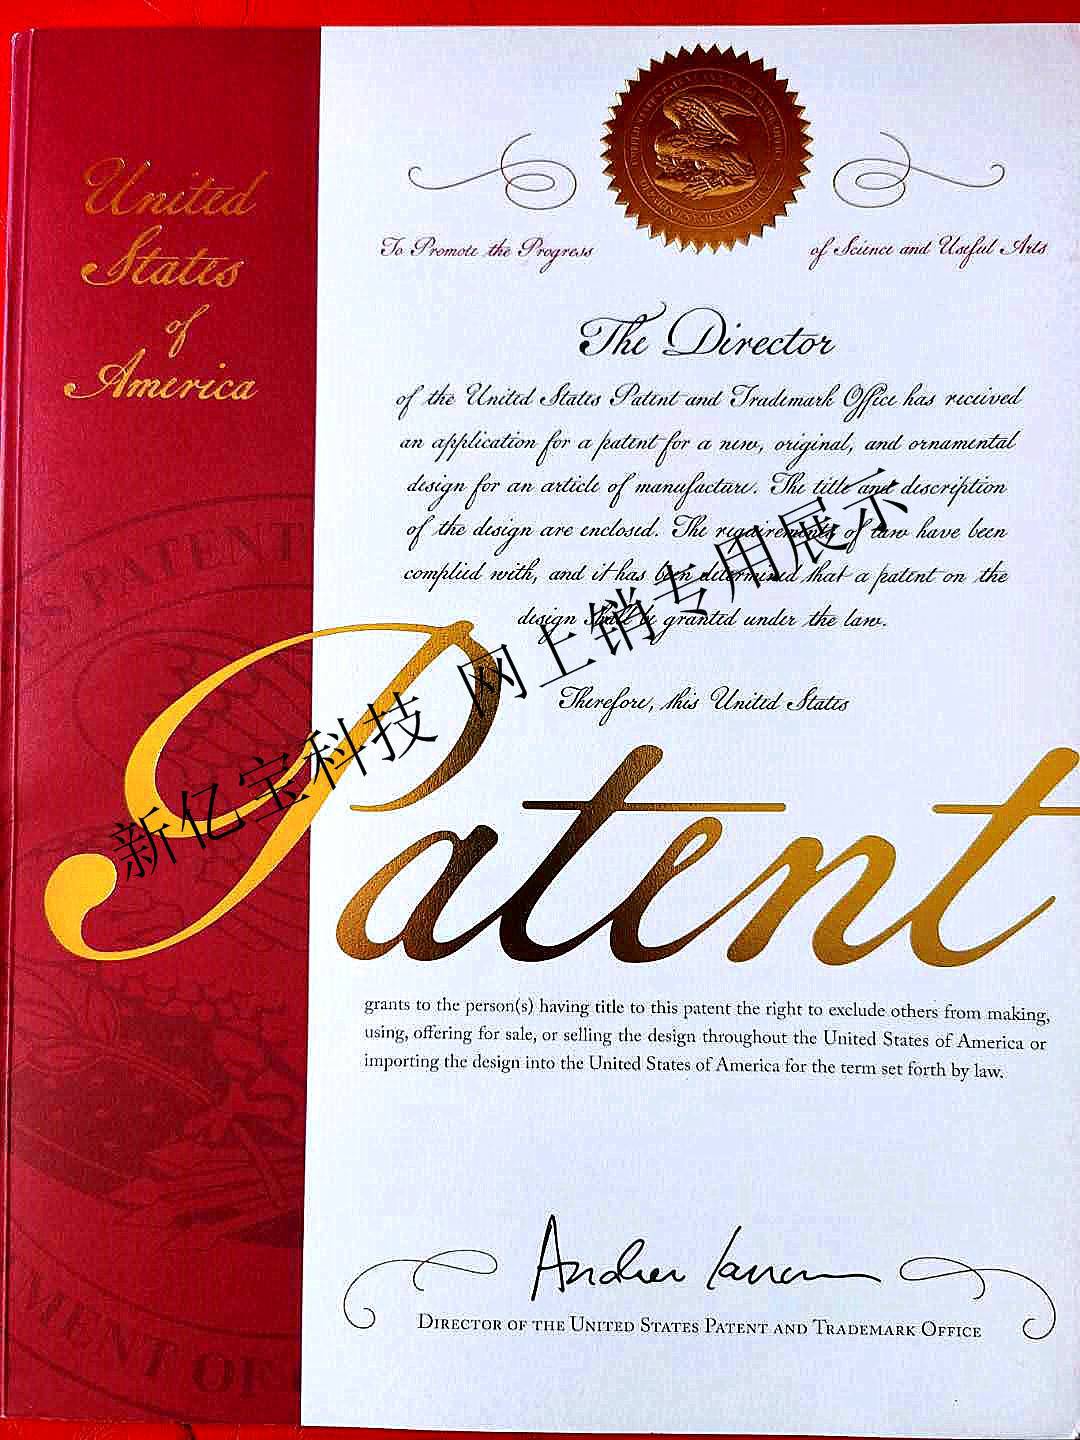 United
States
of
America
To Promote the Progress
of Science and Useful Arts
The Director
of the United States Patent and Trademark Office has received
an application for a patent for a new, original, and ornamental
design for an article of manufacture. The title and description
of the design are enclosed. The requirements of law have been
complied with, and it has been determined that a patent on the
design shall be granted under the law.
Therefore, this United States
Patent
grants to the person(s) having title to this patent the right to exclude others from making,
using, offering for sale, or selling the design throughout the United States of America or
importing the design into the United States of America for the term set forth by law.
DIRECTOR OF THE UNITED STATES PATENT AND TRADEMARK OFFICE
新亿宝科技 网上销专用展示
PATENT
MENT OF